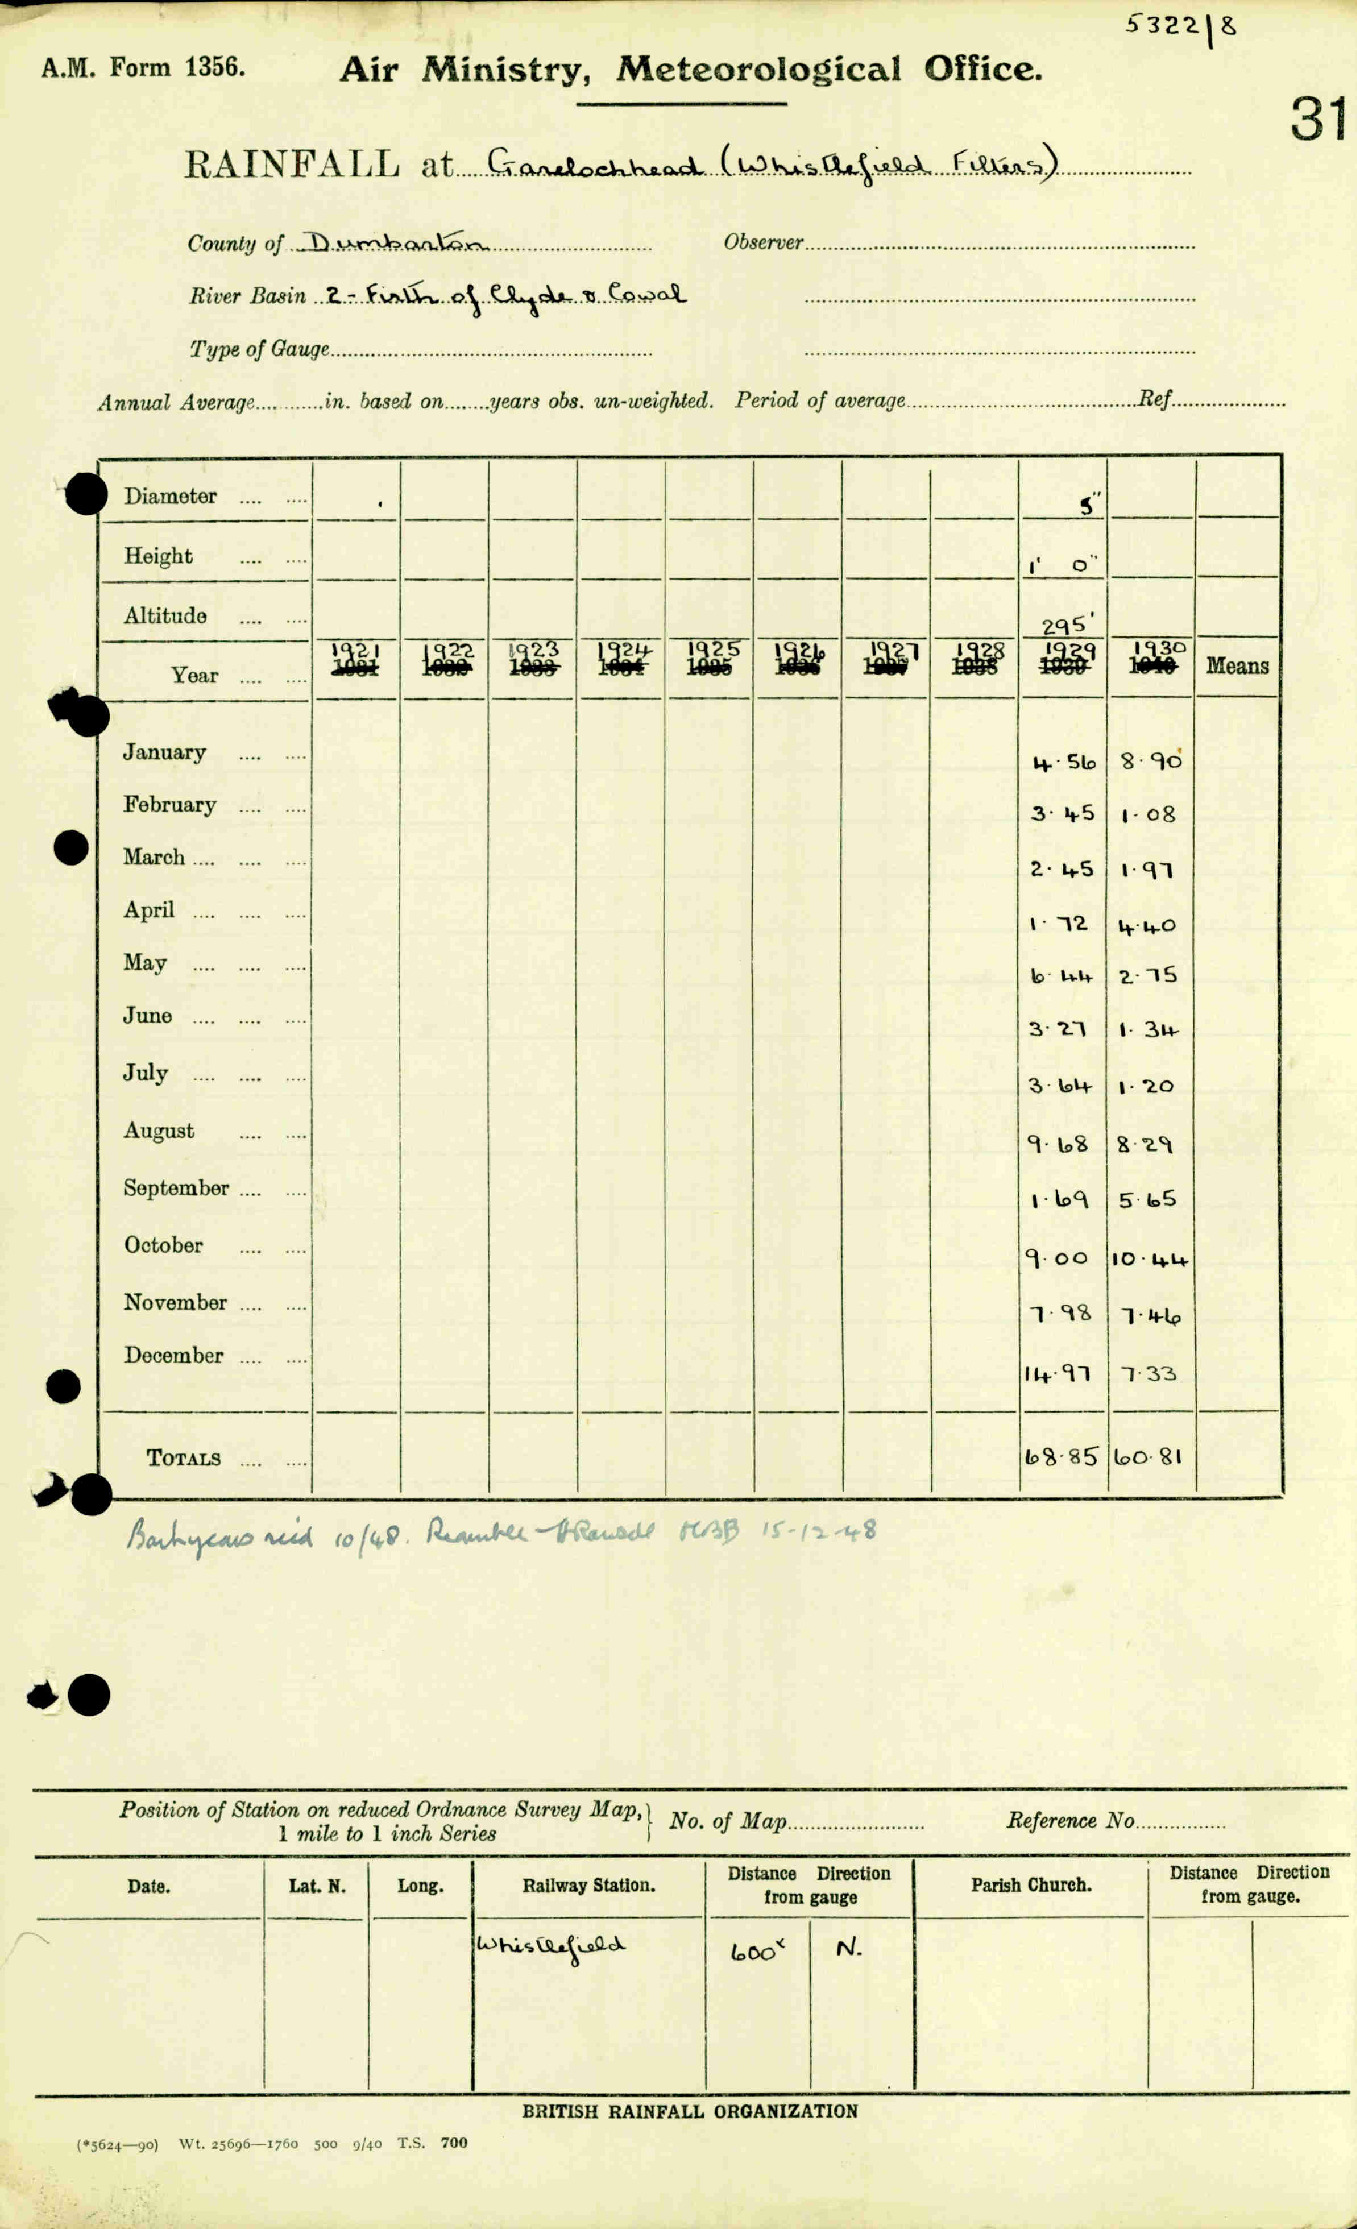 5322/8
A.M. Form 1356. Air Ministry, Meteorological Office.
31
RAINFALL at Garelochhead (Whistlefield Filters)
County of Dumbarton Observer
River Basin 2 - Firth of Clyde & Cowal
Type of Gauge
Annual Average in. based on years obs. un-weighted. Period of average Ref
Diameter 5"
Height 1' 0"
Altitude 295'
1921 1922 1923 1924 1925 1926 1927 1928 1929 1930
Year 1931 1932 1933 1934 1935 1936 1937 1938 1939 1940 Means
January 4.56 8.90
February 3.45 1.08
March 2.45 1.97
April 1.72 4.40
May 6.44 2.75
June 3.27 1.34
July 3.64 1.20
August 9.68 8.29
September 1.69 5.65
October 9.00 10.44
November 7.98 7.46
December 14.97 7.33
TOTALS 68.85 60.81
10/48. 15-12-48
Position of Station on reduced Ordnance Survey Map, No. of Map Reference No
1 mile to 1 inch Series
Date. Lat. N. Long. Railway Station. Distance Direction from gauge Parish Church. Distance Direction from gauge.
Whistlefield 600ˣ N.
BRITISH RAINFALL ORGANIZATION
(*5624—90) Wt. 25696—1760 500 9/40 T.S. 700